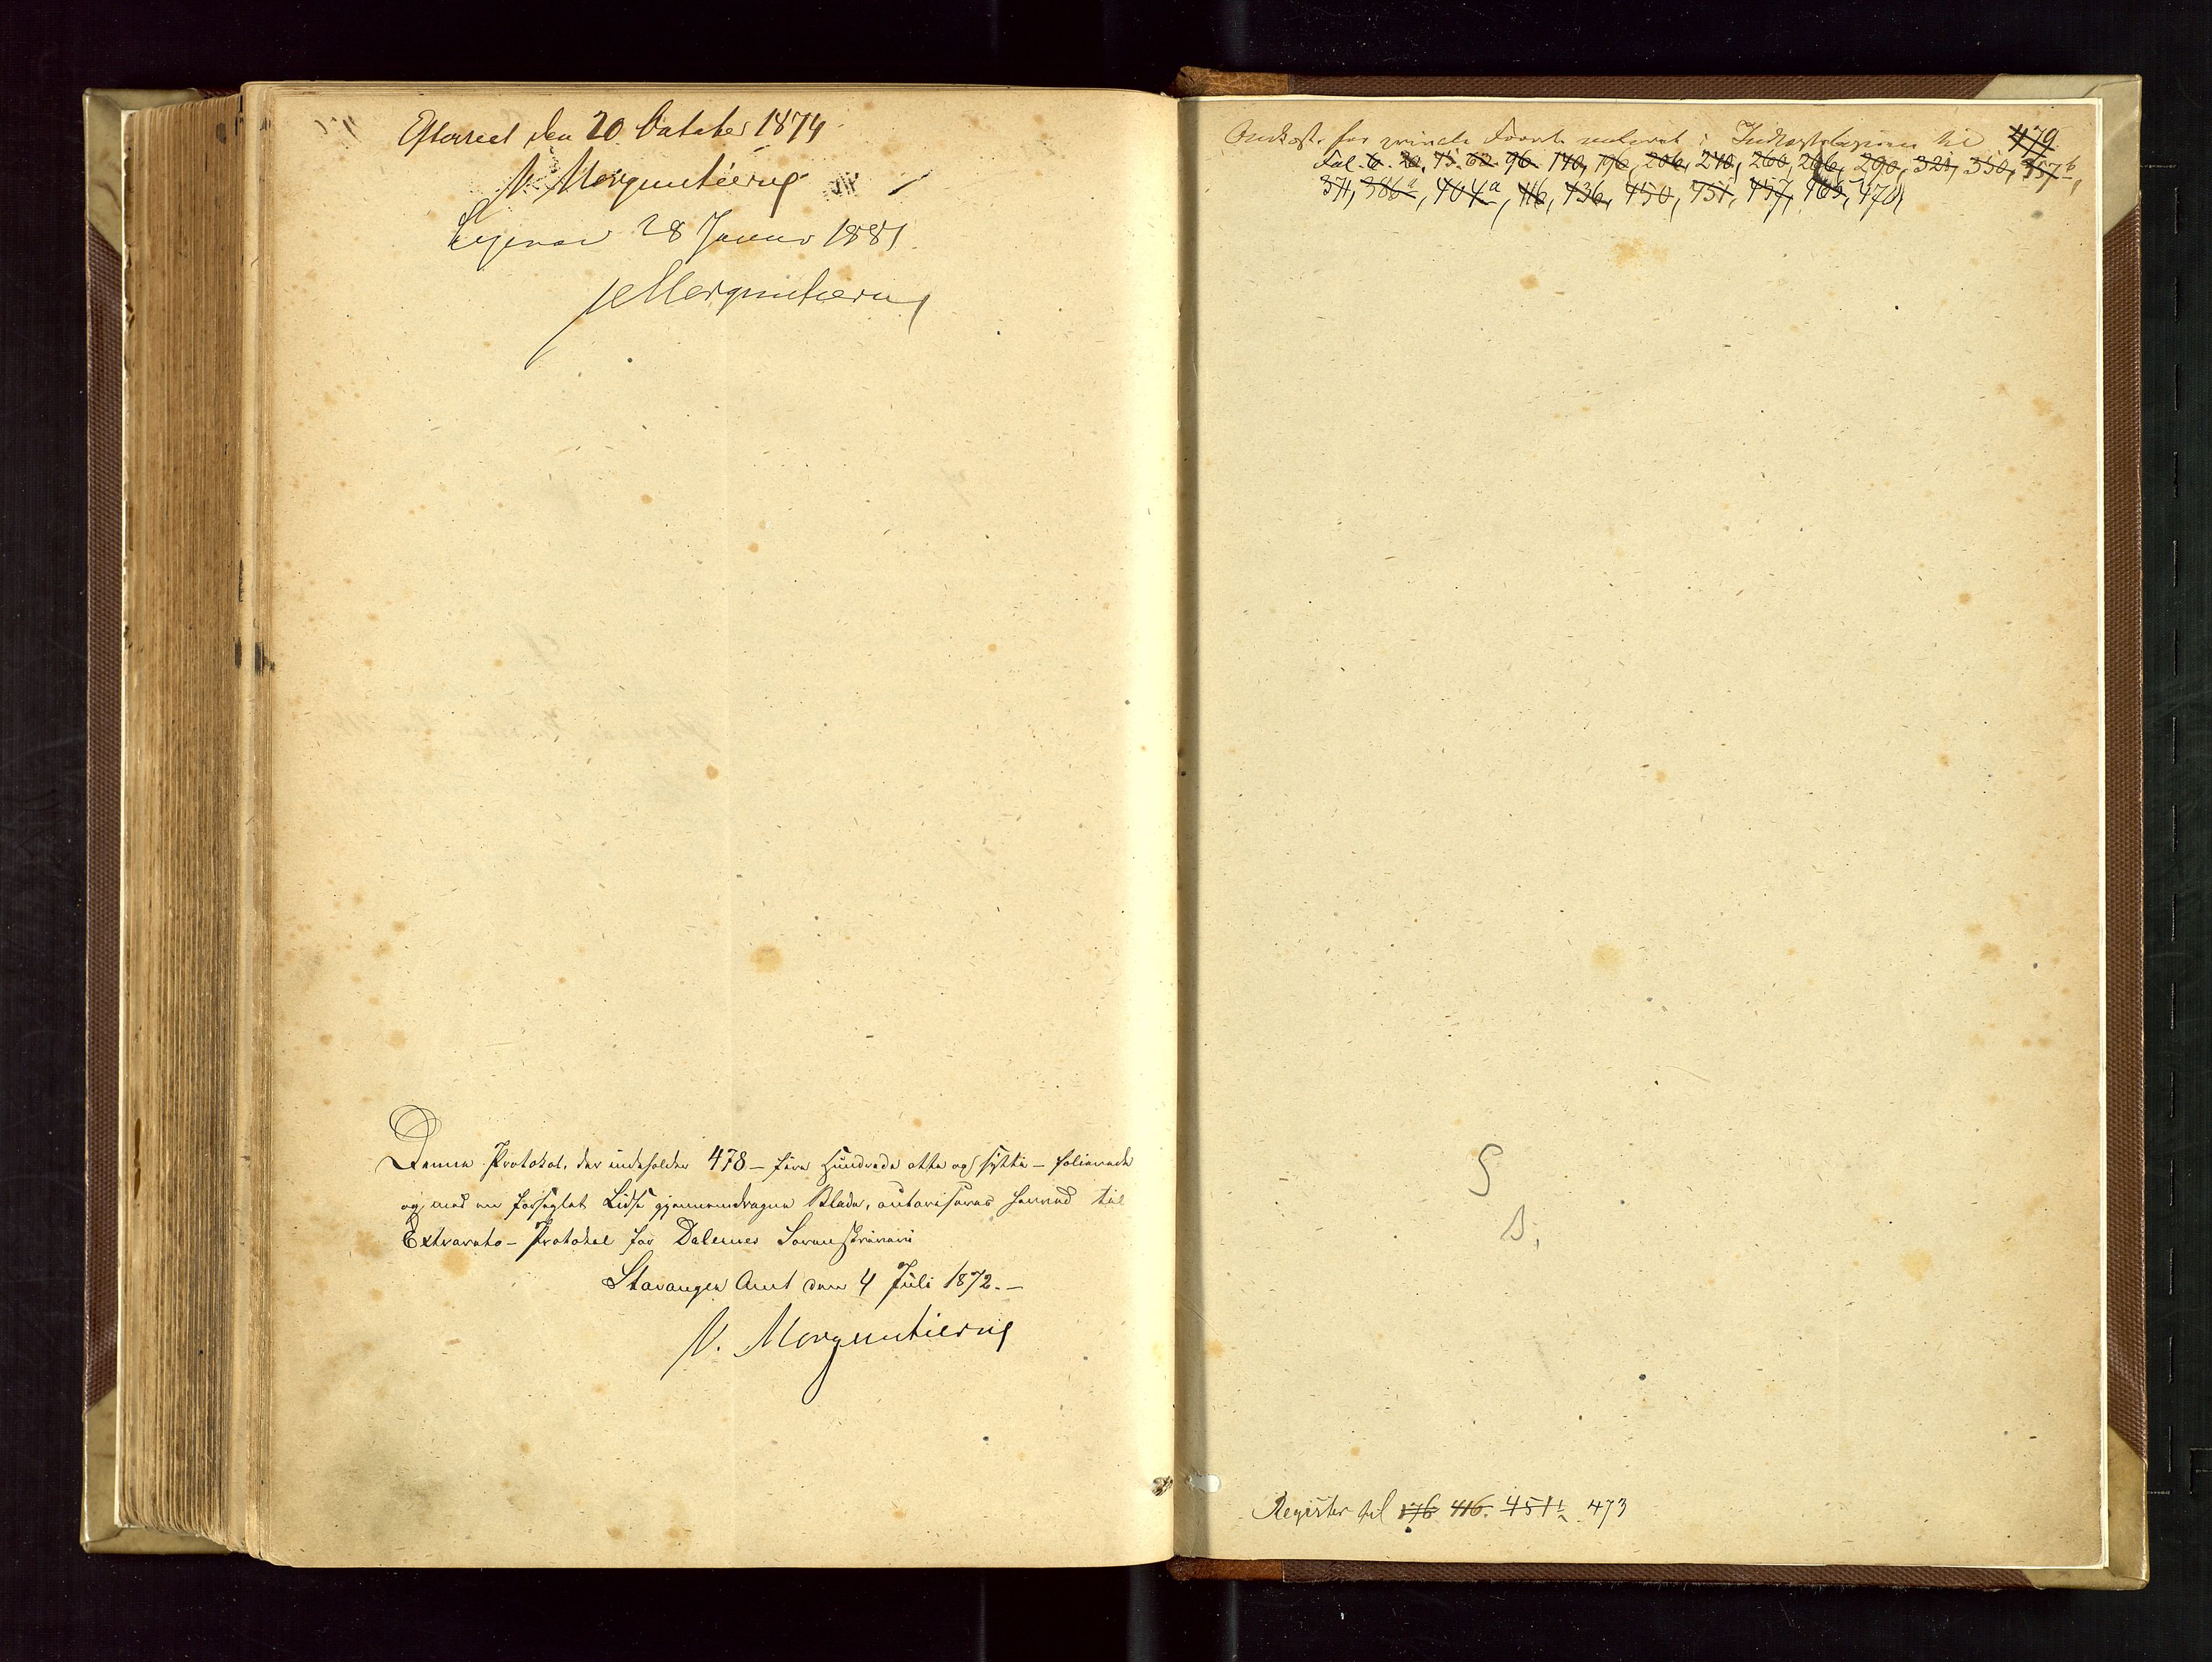 Efterseet den 20 Oktober 1874
V. Morgenstierne
28 Januar 1881
Morgenstierne
Denne Protokol, der indeholder 478 – fire Hundrede otte og sytti – folierede
og med en forseglet Lidse gjennemdragne Blade, autoriseres herved til
Extrarets-Protokol for Dalernes Sorenskriveri
Stavanger Amt den 4 Juli 1872. –
V. Morgenstierne
for private noteret i til 479
Fol. 6. 20. 45. 62 96. 140, 196, 206, 240, 260, 266, 290, 321, 350, 357b,
371, 386a, 404a, 416, 436, 450, 451, 457, 465, 470,
S
D.
Register til 176 416. 451b. 473